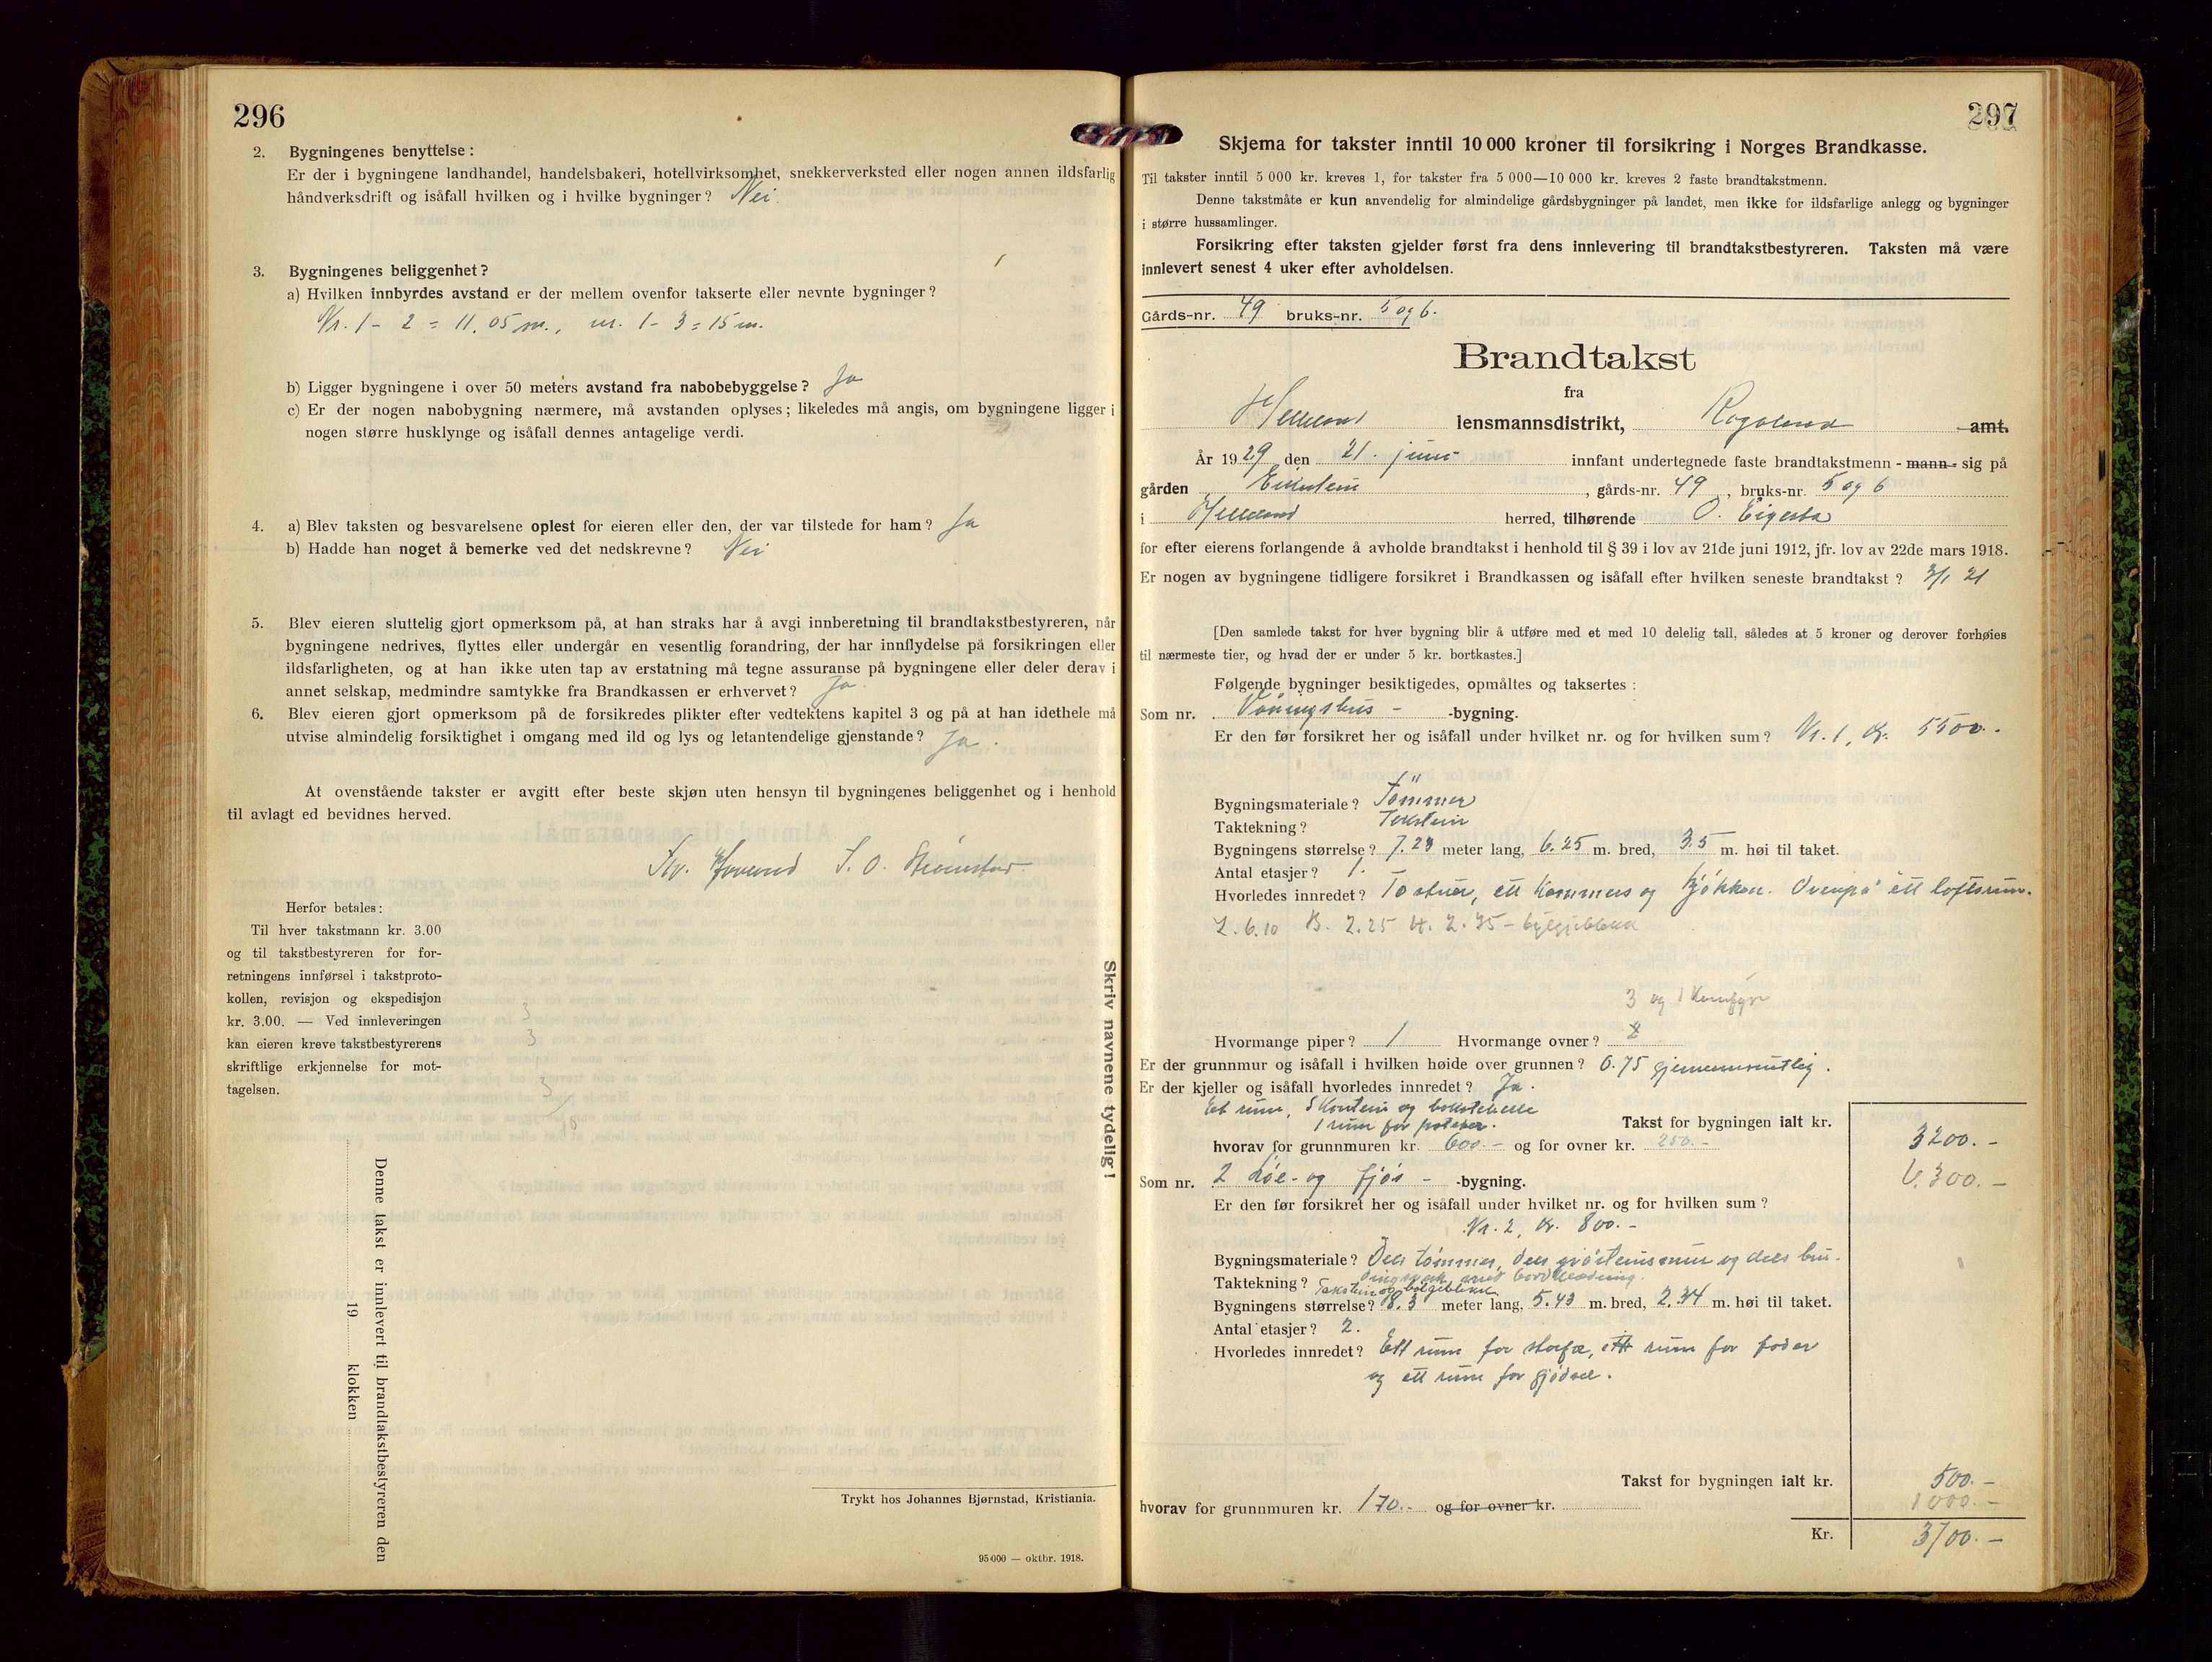 296
2. Bygningenes benyttelse :
Er der i bygningene landhandel, handelsbakeri, hotellvirksomhet, snekkerverksted eller nogen annen ildsfarlig
håndverksdrift og isåfall hvilken og i hvilke bygninger ? Nei
3. Bygningenes beliggenhet ?
a) Hvilken innbyrdes avstand er der mellem ovenfor takserte eller nevnte bygninger ?
Nr. 1 - 2 = 11.05 m., nr. 1 - 3 = 15 m.
b) Ligger bygningene i over 50 meters avstand fra nabobebyggelse ? Ja
c) Er der nogen nabobygning nærmere, må avstanden oplyses ; likeledes må angis, om bygningene ligger i
nogen større husklynge og isåfall dennes antagelige verdi.
4. a) Blev taksten og besvarelsene oplest for eieren eller den, der var tilstede for ham ? Ja
b) Hadde han noget å bemerke ved det nedskrevne ? Nei
5. Blev eieren sluttelig gjort opmerksom på, at han straks har å avgi innberetning til brandtakstbestyreren, når
bygningene nedrives, flyttes eller undergår en vesentlig forandring, der har innflydelse på forsikringen eller
ildsfarligheten, og at han ikke uten tap av erstatning må tegne assuranse på bygningene eller deler derav i
annet selskap, medmindre samtykke fra Brandkassen er erhvervet ? Ja.
6. Blev eieren gjort opmerksom på de forsikredes plikter efter vedtektens kapitel 3 og på at han idethele må
utvise almindelig forsiktighet i omgang med ild og lys og letantendelige gjenstande ? Ja.
At ovenstående takster er avgitt efter beste skjøn uten hensyn til bygningenes beliggenhet og i henhold
til avlagt ed bevidnes herved.
Herfor betales :
Til hver takstmann kr. 3.00
og til takstbestyreren for for-
retningens innførsel i takstproto-
kollen, revisjon og ekspedisjon
kr. 3.00. — Ved innleveringen
kan eieren kreve takstbestyrerens
skriftlige erkjennelse for mot-
tagelsen.
3
3
3
Skriv navnene tydelig !
Denne takst er innlevert til brandtakstbestyreren den
19 klokken
Trykt hos Johannes Bjørnstad, Kristiania.
95 000 — oktbr. 1918.
297
Skjema for takster inntil 10 000 kroner til forsikring i Norges Brandkasse.
Til takster inntil 5 000 kr. kreves 1, for takster fra 5 000—10 000 kr. kreves 2 faste brandtakstmenn.
Denne takstmåte er kun anvendelig for almindelige gårdsbygninger på landet, men ikke for ildsfarlige anlegg og bygninger
i større hussamlinger.
Forsikring efter taksten gjelder først fra dens innlevering til brandtakstbestyreren. Taksten må være
innlevert senest 4 uker efter avholdelsen.
Gårds-nr. 49 bruks-nr. 5 og 6.
Brandtakst
fra
Helleland lensmannsdistrikt, Rogaland amt.
År 1929 den 21. juni innfant undertegnede faste brandtakstmenn - mann - sig på
gården , gårds-nr. 49 , bruks-nr. 5 og 6
i Helleland herred, tilhørende O.
for efter eierens forlangende å avholde brandtakst i henhold til § 39 i lov av 21de juni 1912, jfr. lov av 22de mars 1918.
Er nogen av bygningene tidligere forsikret i Brandkassen og isåfall efter hvilken seneste brandtakst ? 3/1 21
[Den samlede takst for hver bygning blir å utføre med et med 10 delelig tall, således at 5 kroner og derover forhøies
til nærmeste tier, og hvad der er under 5 kr. bortkastes.]
Følgende bygninger besiktigedes, opmåltes og taksertes :
Som nr. Våningshus - -bygning.
Er den før forsikret her og isåfall under hvilket nr. og for hvilken sum ? Nr. 1, Kr. 5500.-
Bygningsmateriale ? Tömmer
Taktekning ? Takstein
Bygningens størrelse ? 7.23 meter lang, 6.25 m. bred, 3.5 m. høi til taket.
Antal etasjer ? 1.
Hvorledes innredet ? To stuer, ett kammers og kjøkken. Ovenpå ett loftsrum.
L. 6.10 B. 2.25 H. 2.35 -
3 og 1 Komfyr
Hvormange piper ? 1 Hvormange ovner ? 2
Er der grunnmur og isåfall i hvilken høide over grunnen ? 0.75 gjennemsnitlig.
Er der kjeller og isåfall hvorledes innredet ? Ja.
1 rum for poteter.
Takst for bygningen ialt kr. 3200.-
hvorav for grunnmuren kr. 600.- og for ovner kr. 250.-
6.300.-
Som nr. 2 Løe- og fjøs - -bygning.
Er den før forsikret her og isåfall under hvilket nr. og for hvilken sum ?
Nr. 2, Kr. 800.-
Bygningsmateriale ? Dels tømmer, dels gråsteinsmur og dels bin-
dingsverk med bordklædning.
Taktekning ? Takstein og bølgeblikk
Bygningens størrelse ? 8.3 meter lang, 5.43 m. bred, 2.34 m. høi til taket.
Antal etasjer ? 2.
Hvorledes innredet ? Ett rum for storfæ, ett rum for foder
og ett rum for gjødsel.
Takst for bygningen ialt kr. 500.-
1000.-
hvorav for grunnmuren kr. 170.- og for ovner kr.
Kr. 3700.-